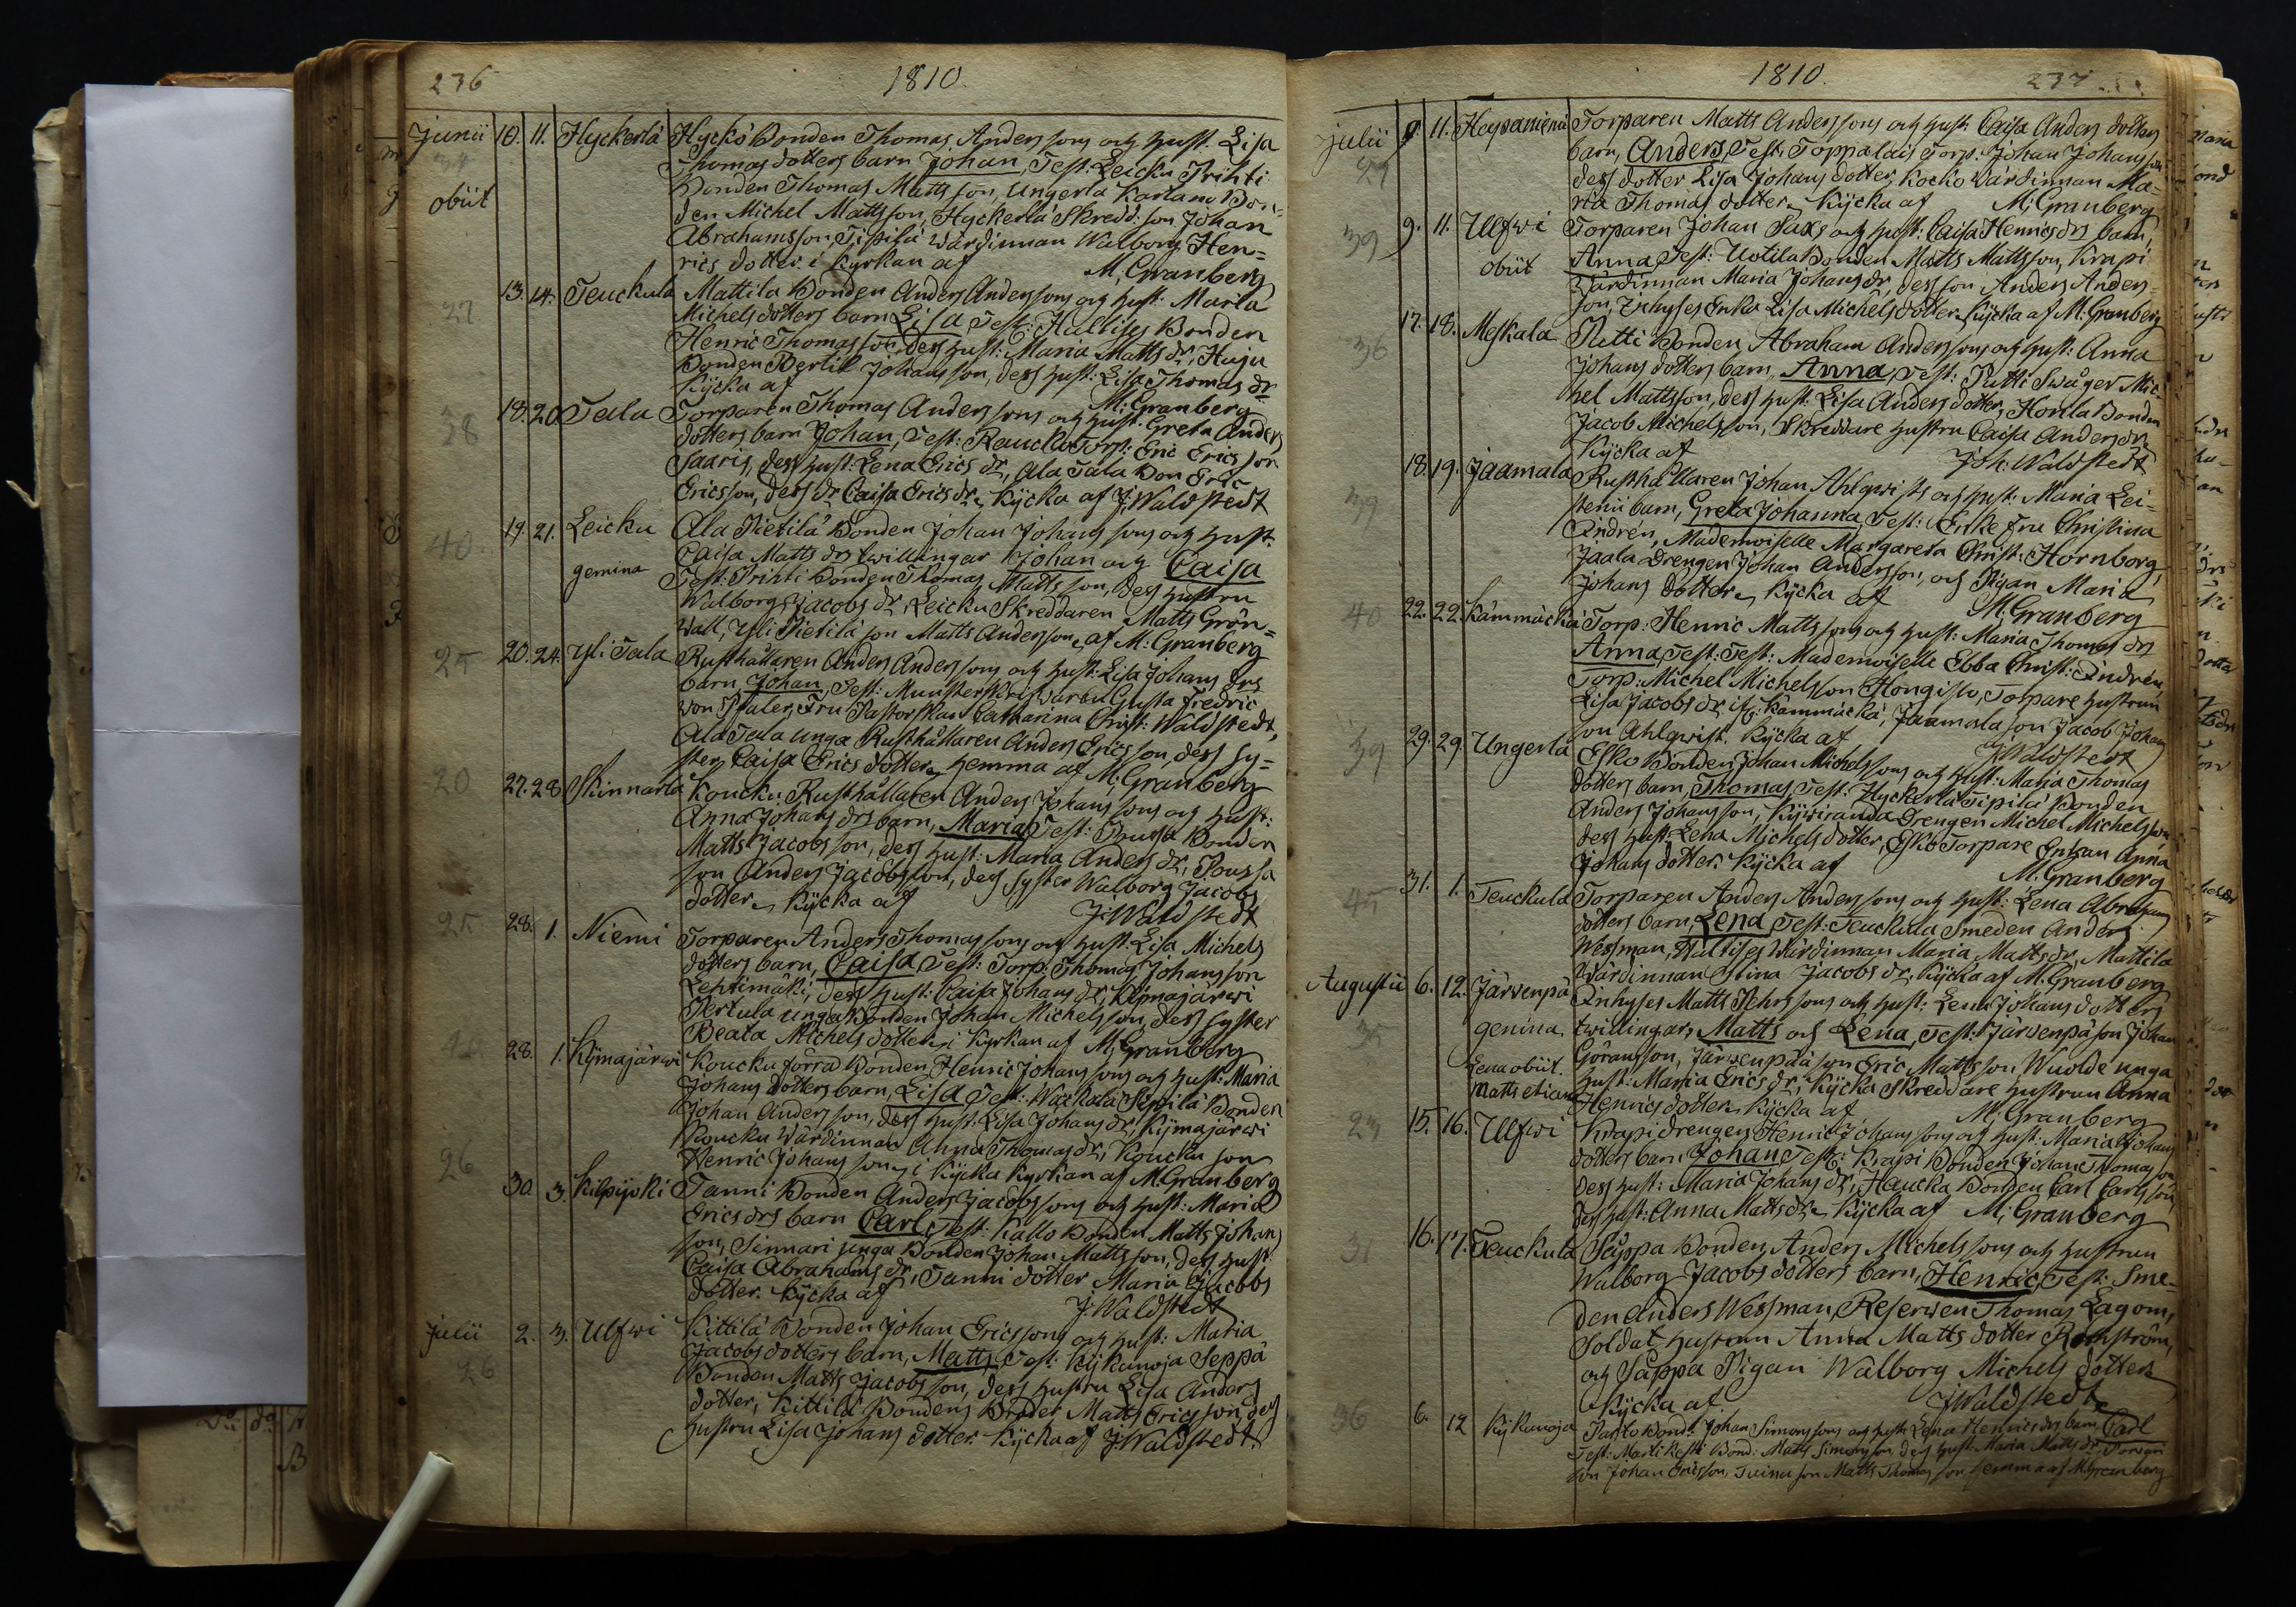 236
1810.
Junii 10. 11. Hyckerlä Hyckö Bonden Thomas Anderssons och hust. Lisa
Thomas dotters barn Johan, Test: Leicku Prihti
obiit Bonden Thomas Mattsson, Ungerla Karlano Bon-
den Michel Mattsson, Hyckerlä Skredd. son Johan
Abrahamsson, Tipilä wärdinnan Walborg Hen-
rics dotter. i Kyrkan af M. Granberg
27 13. 14. Teuckula Mattila Bonden Anders Anderssons och hust: Maria
Michelsdotters barn Lisa Test: Haltises Bonden
Henric Thomasson, dess hust: Maria Matts dr, Huju
Bonden Bertil Johansson, dess hust: Lisa Thomas dr
Kÿcka af M: Granberg
38 18. 20. Tala Torparen Thomas Anderssons och hust. Greta Anders
dotters barn Johan, Test: Raucko Torp: Eric Ericsson
Saaris, dess hust: Lena Erics dr, Ala Tala Bon Eric
Ericsson, dess dr Caisa Erics dr, Kÿcka af J. Waldstedt
40 19. 21. Leicku Ala Pietilä Bonden Johan Johanssons och hust.
Caisa Matts drs twillingar Johan och Caisa
gemina Test: Prihti Bonden Thomas Mattsson, dess hustru
Walborg Jacobs dr, Leicku Skreddaren Matts Grön-
wall, Yli Pietilä son Matts Andersson, af M: Granberg
25 20. 24. Yli Tala Rusthållaren Anders Anderssons och hust: Lisa Johans drs
barn Johan, Test: Munsterskrifwaren Gusta Fredric
von Thaler, Fru Pastorskan Catharina Christ: Waldstedt,
Ala Tala unga Rusthållaren Anders Ericsson, dess sy-
ster Caisa Erics dotter, hemma af M: Granberg
20 27. 28. Skinnarla Koucku Rusthållaren Anders Johanssons och hust:
Anna Johans drs barn, Maria Test: Prussa Bonden
Matts Jacobsson, dess hust: Maria Anders dr, Poussa
son Anders Jacobsson, dess syster Walborg Jacobs
dotter, Kÿcka af J: Waldstedt
25 28. 1. Niemi Torparen Anders Thomassons och hust. Lisa Michels
dotters barn, Caisa, Test: Torp: Thomas Johansson
Lehtimäki, dess hust: Caisa Johans dr, Kÿmajärwi
Pertula unga Bonden Johan Michelsson, dess syster
Beata Michels dotter, i Kyrkan af M: Granberg
28. 1. Kÿmajärwi Koucku förra Bonden Henric Johanssons och hust: Maria
Johans dotters barn, Lisa Test: Wackala Sipilä Bonden
Johan Andersson, dess hust: Lisa Johans dr, Kÿmajärwi
Koucku wärdinnan Anna Thomas dr, Koucku son
26 Henric Johansson, i Kÿcka Kyrkan af M. Granberg
30. 3. Kilpijoki Tanni Bonden Anders Jacobssons och hust: Maria
Erics drs barn Carl, Test: Kallo Bonden Matts Johans
son, Sinnari unga Bonden Johan Mattsson, dess hust
Caisa Abrahams dr, Tanni dotter Maria Jacobs
dotter. Kÿcka af J: Waldstedt
Julii 2. 3. Ulfwi Kittilä Bonden Johan Ericssons och hust: Maria
26 Jacobs dotters barn, Matts, Test: Kÿkunoja Seppä
Bonden Matts Jacobsson, dess hustru Lisa Anders
dotter, Kittilä Bondens Broder Matts Ericsson, dess
hustru Lisa Johans dotter. Kÿcka af J: Waldstedt.
1810.
237
Julii 9. 11. Haapaniemi Torparen Matts Anderssons och hust. Caisa Anders dotters
29 barn, Anders, Test: Toppalais Torp: Johan Johansson
dess dotter Lisa Johans dotter, Kocko wärdinnan Ma-
ria Thomas dotter, Kÿcka af M; Granberg
39 9. 11. Ulfwi Torparen Johan Saxs och hust: Caisa Henrics drs barn,
obiit Anna, Test: Uotila Bonden Matts Mattsson, Krapi
wärdinnan Maria Johans dr, dess son Anders Anders-
son, Inhyses Enka Lisa Michels dotter, Kÿcka af M: Granberg
36 17. 18. Meskala Putti Bonden Abraham Anderssons och hust: Anna
Johans dotters barn, Anna, Test: Putti Swåger Mic-
hel Mattsson, dess hust: Lisa Anders dotter, Honla Bonden
Jacob Michelsson, Skreddare hustru Caisa Anders dr
Kÿcka af Joh: Waldstedt
39 18. 19. Jaamala Rusthållaren Johan Ahlqwists och hust: Maria Lei-
stenii barn, Greta Johanna, Test: Enke fru Christina
Indrén, Mademoiselle Margareta Christ: Hornborg,
Jaala Drengen Johan Andersson, och Pigan Maria
Johans dotter, Kÿcka af M: Granberg
40 22. 22. Kämmäckä Torp: Henric Mattssons och hust: Maria Thomas drs
Anna, Test: Test: Mademoiselle Ebba Christ: Indrén,
Torp: Michel Michelsson Hongisto, Torpare hustrun
Lisa Jacobs dr ifr: Kämmäckä, Jaamala son Jacob Johans
son Ahlqwist. Kÿcka af J Waldstedt
39 29. 29. Ungerla Esko Bonden Johan Michelssons och hust: Maria Thomas
dotters barn, Thomas, Test: Hyckerlä Tipilä Bonden
Anders Johansson, Kÿwiranda Drengen Michel Michelsson
dess hust: Lena Michels dotter, Esko Torpare Enkan Anna
Johans dotter. Kÿcka af M. Granberg
45 31. 1. Teuckula Torparen Anders Anderssons och hust: Lena Abrahams
dotters barn, Lena Test: Teuckula Smeden Anders
Wessman, Haltises Wärdinnan Maria Matts dr, Mattila
Wärdinnan Stina Jacobs dr, Kÿcka af M. Granberg
Augusti 6. 12. Järwenpä Inhyses Matts Pehrssons och hust: Lena Johans dotters
35 gemina. twillingar, Matts och Lena, Test: Järwenpä son Johan
Göransson, Järwenpää son Eric Mattsson, Wuolde unga
Lena obiit. hust: Maria Erics dr, Kÿcka Skreddare hustrun Anna
Matts etiam Henrics dotter, Kÿcka af M; Granberg
23 15. 16. Ulfwi Krapi drengen Henric Johanssons och hust: Maria Johans
dotters barn Johan Test: Krapi Bonden Johan Thomasson
dess hust: Maria Johans dr, Haucka Bonden Carl Carlsson,
dess hust: Anna Matts dr, Kÿcka af M; Granberg
31 16. 17. Teuckula Säppä Bonden Anders Michelssons och hustrun
Walborg Jacobs dotters barn, Henric, Test: Sme-
den Anders Wessman, Reserwen Thomas Lagom,
Soldat hustrun Anna Matts dotter
och Säppä Pigan Walborg Michels dotter
Kÿcka af J Waldstedt
36 6. 12 Kÿkunoja Bond: Johan Simonssons och hust: Lena Henrics drs barn, Carl
Test: Bond: Matts Simonsson, dess hust: Maria Matts dr,
son Johan Ericsson, son Matts Thomasson, hemma af M. Granberg